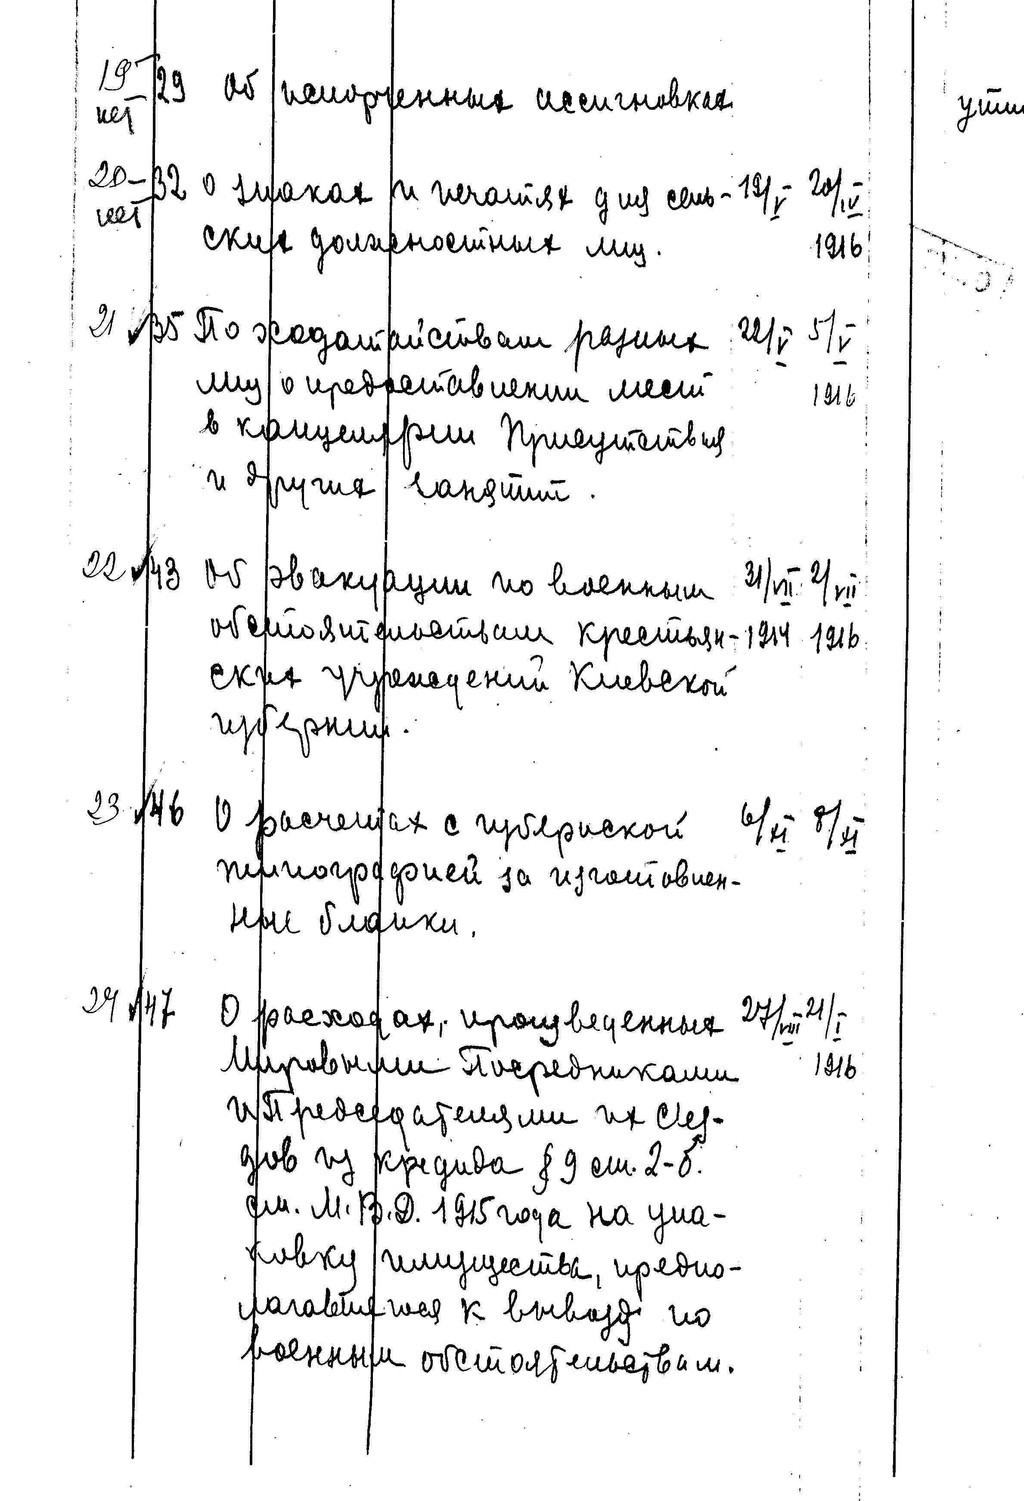 19 29 Об испорченных ассигновках
нет
20 32 О знаках и печатях для сель- 19/V 20/IV
нет
ских должностных лиц. 1916
21 35 По ходатайствам разных 22/V 5/V
лиц о предоставлении мест 1916
в канцелярии Присутствия
и других занятий.
22 43 Об эвакуации по военным 31/VII 2/VII
обстоятельствам крестьян- 1914 1916
ских учреждений Киевской
губернии.
23 46 О расчетах с губернской 6/XI 8/XI
типографией за изготовлен-
ные бланки.
24 47 О расходах, произведенных 27/VIII 21/I
Мировыми Посредниками 1916
и Председателями их Съез-
дов из кредита § 9 ст. 2-б.
см. М.В.Д. 1915 года на упа-
ковку имущества, предпо-
лагавшегося к вывозу по
военным обстоятельствам.